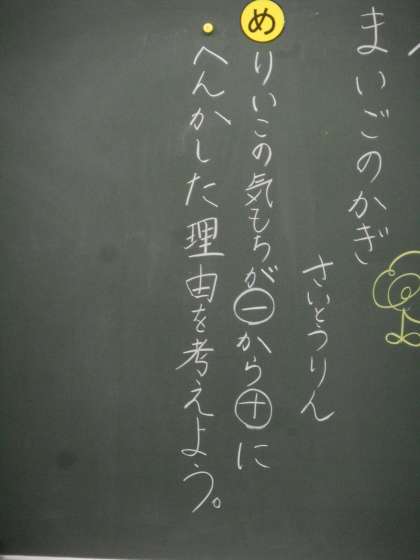 まいごのかぎ
さいとうりん
め
りいこの気もちが㊀から㊉に
へんかした理由を考えよう。